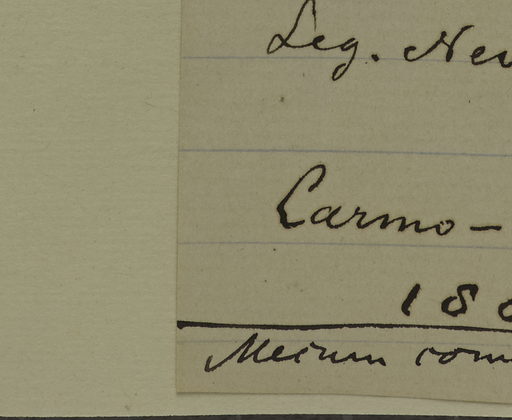 Leg. Nev
Carmo-
186
Mecum com